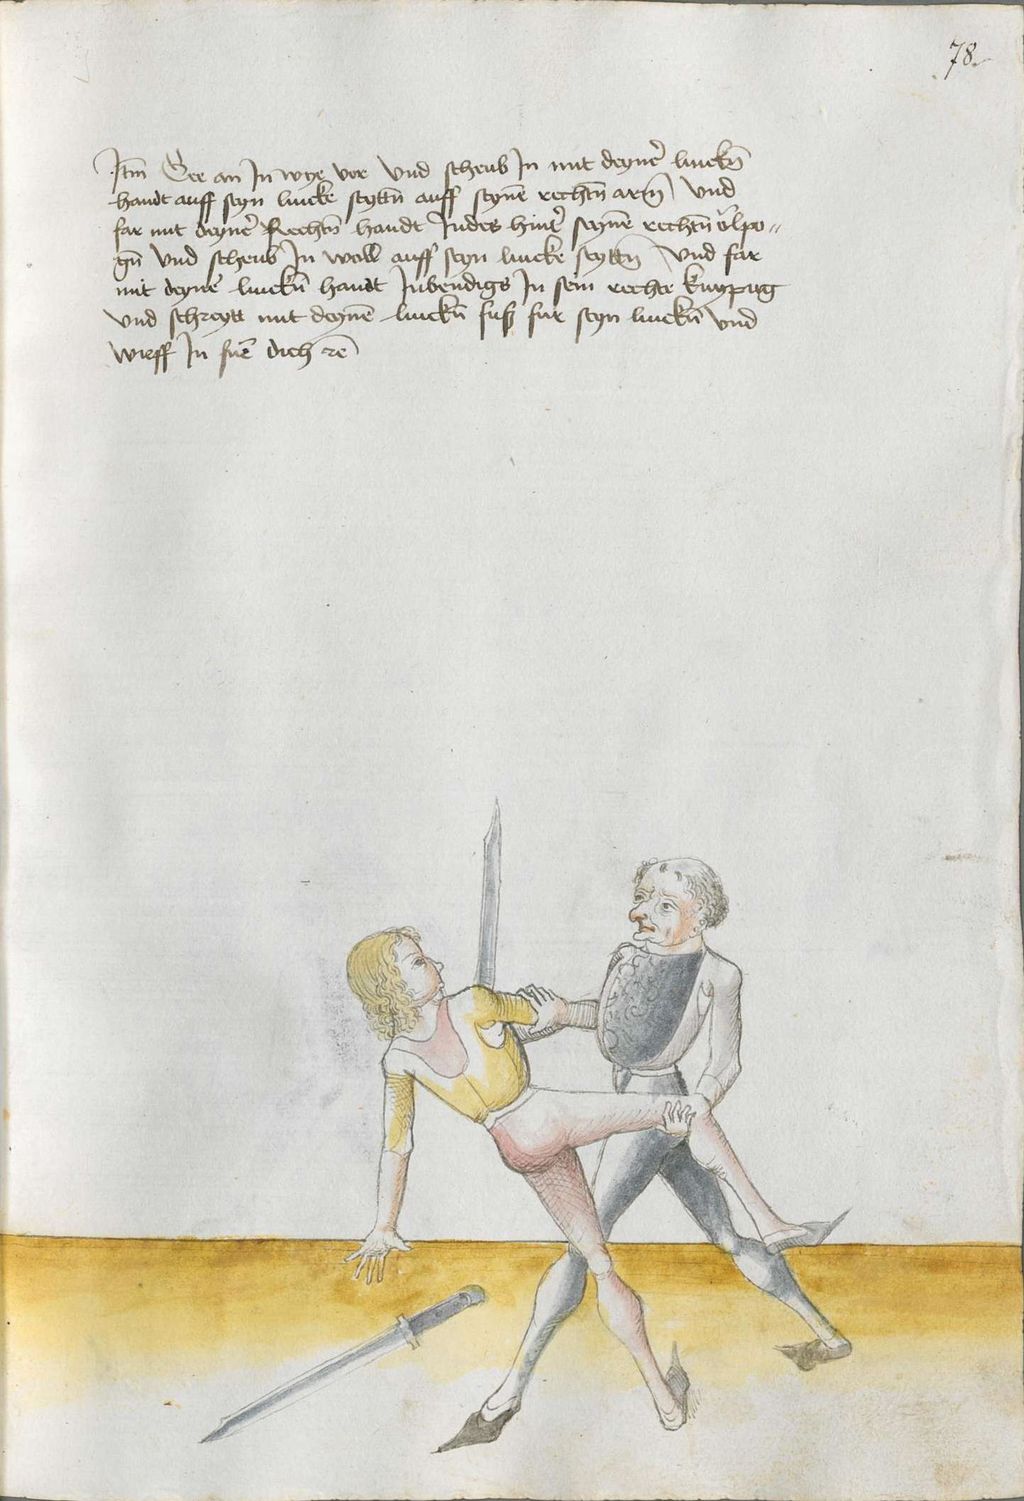 78
Itm Gee an In wye vor vnd scheub In mit deyner̃ linckñ
handt auff seyn lincke seyttñ auff seyne rechtñ arm̃ vnd
far mit deyner̃ Rechtñ handt Indes hinter̃ seyne rechtñ elpo〃
gñ vnd scheub In woll auff seyn lincke seyttñ vnd far
mit deyne linckñ handt Inbendigs In sein rechte knypug
vnd schreytt mit deyne linckñ fuß fur seyn linckñ vnd
wirff In fur̃ dich ꝛc̃